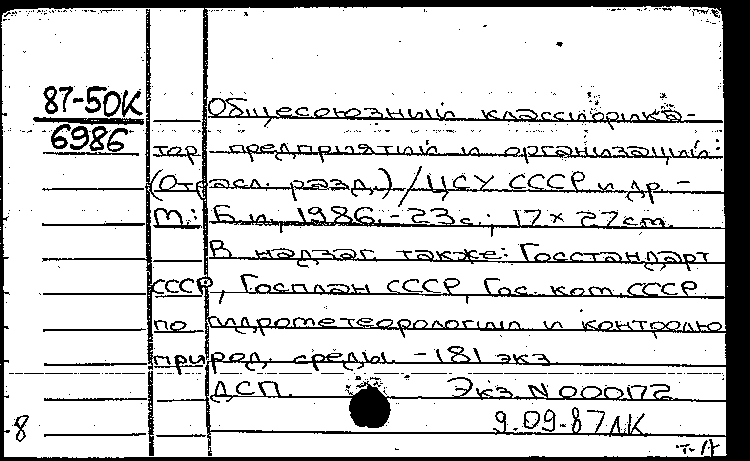 87-50К
6986
Общесоюзный классифика-
тор предприятий и организаций:
(Отрасл. разд.) / ЦСУ СССР и др. -
М.: Б.и., 1986. - 23 с.; 17 × 27 см.
В надзаг. также: Госстандарт
СССР, Госплан СССР, Гос. ком. СССР
по гидрометеорологии и контролю
природ. среды. - 181 экз.
ДСП. Экз. N 000172
9.09.87 ЛК
8